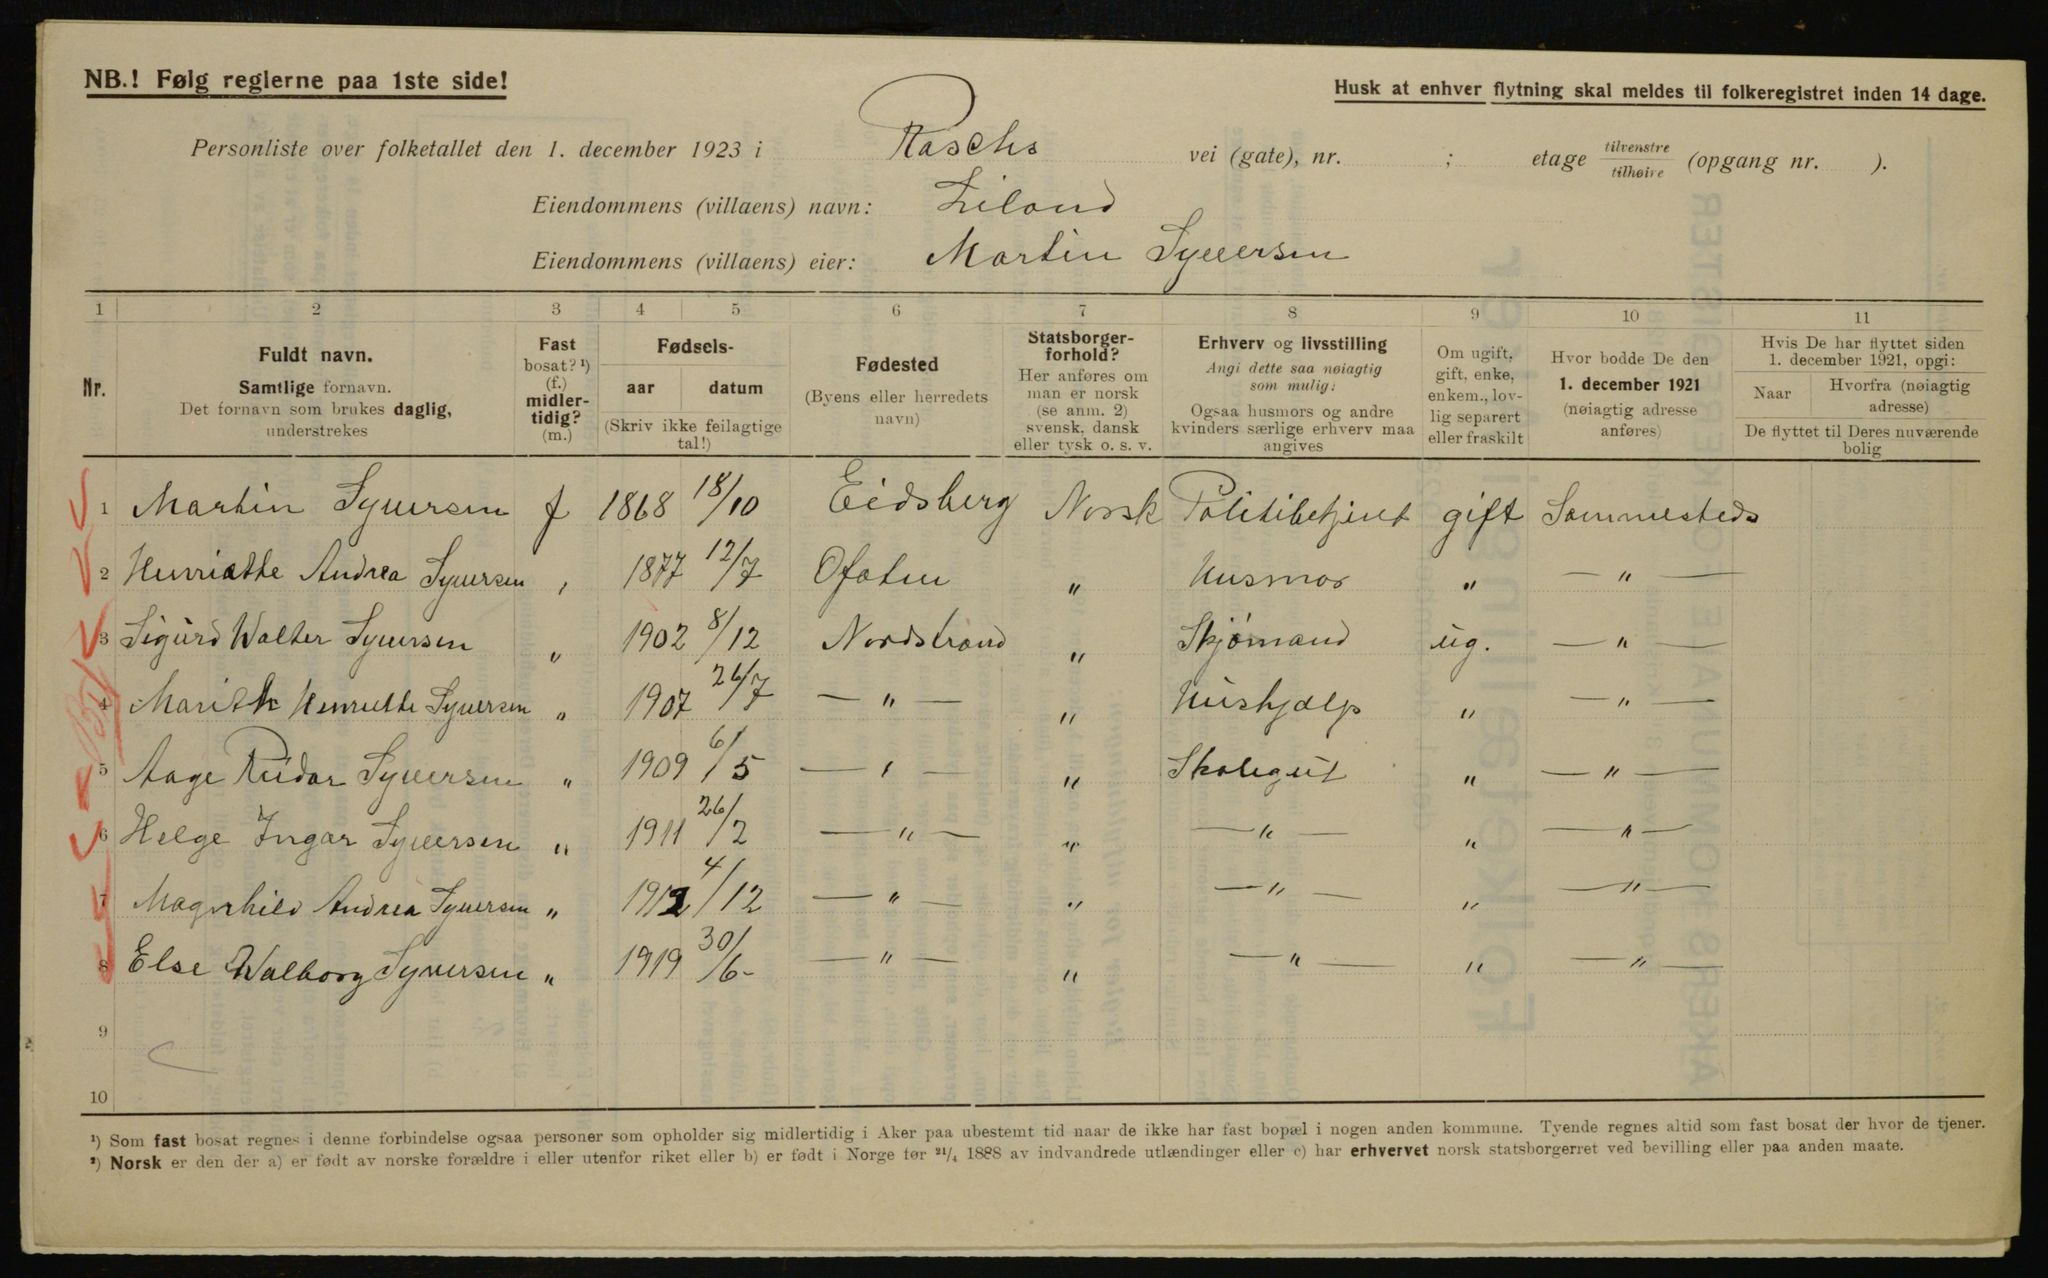 NB.! Følg reglerne paa 1ste side!
Husk at enhver flytning skal meldes til folkeregistret inden 14 dage.
Personliste over folketallet den 1. december 1923 i Raschs vei (gate), nr. ; etage tilvenstre tilhøire (opgang nr. ).
Eiendommens (villaens) navn:
Eiendommens (villaens) eier: Martin Syversen
1 2 3 4 5 6 7 8 9 10 11
Nr.
Fuldt navn.
Samtlige fornavn.
Det fornavn som brukes daglig,
understrekes
Fast
bosat? ¹)
(f.)
midler-
tidig?
(m.)
Fødsels-
aar datum
(Skriv ikke feilagtige
tal!)
Fødested
(Byens eller herredets
navn)
Statsborger-
forhold?
Her anføres om
man er norsk
(se anm. 2)
svensk, dansk
eller tysk o. s. v.
Erhverv og livsstilling
Angi dette saa nøiagtig
som mulig:
Ogsaa husmors og andre
kvinders særlige erhverv maa
angives
Om ugift,
gift, enke,
enkem., lov-
lig separert
eller fraskilt
Hvor bodde De den
1. december 1921
(nøiagtig adresse
anføres)
Hvis De har flyttet siden
1. december 1921, opgi:
Naar Hvorfra (nøiagtig
adresse)
De flyttet til Deres nuværende
bolig
1 Martin Syversen f 1868 18/10 Eidsberg Norsk Politibetjent gift Sammesteds
2 Henriette Andrea Syversen " 1877 12/7 Ofoten " Husmor " — " —
3 Sigurd Walter Syversen " 1902 8/12 Nordstrand " Sjømand ug. — " —
4 Marith Henriette Syversen " 1907 26/7 — " — " Hushjælp " — " —
5 Aage Reidar Syversen " 1909 6/5 — " — " Skolegut " — " —
6 Helge Ingar Syversen " 1911 26/2 — " — " — " — " — " —
7 Magnhild Andrea Syversen " 1912 4/12 — " — " — " — " — " —
8 Else Walborg Syversen " 1919 30/6- — " — " — " — " — " —
9
10
¹) Som fast bosat regnes i denne forbindelse ogsaa personer som opholder sig midlertidig i Aker paa ubestemt tid naar de ikke har fast bopæl i nogen anden kommune. Tyende regnes altid som fast bosat der hvor de tjener.
²) Norsk er den der a) er født av norske forældre i eller utenfor riket eller b) er født i Norge før 21/4 1888 av indvandrede utlændinger eller c) har erhvervet norsk statsborgerret ved bevilling eller paa anden maate.